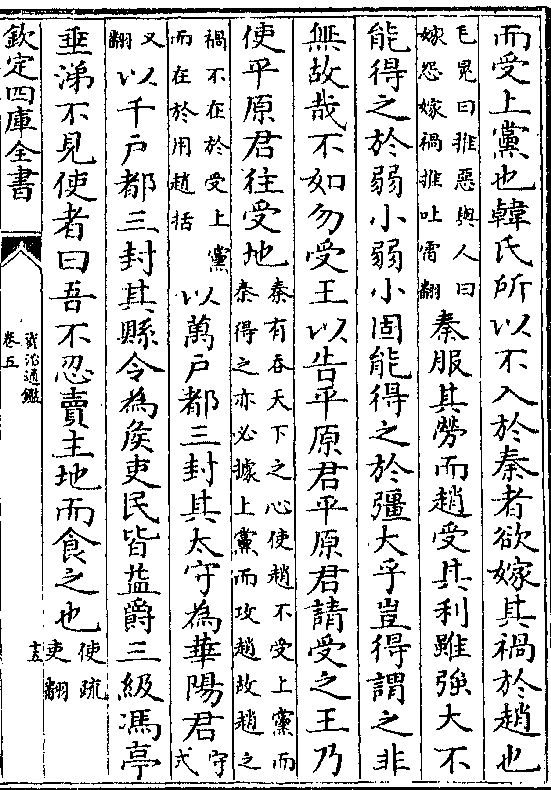 而受上黨也韓氏所以不入於秦者欲嫁其禍於趙也
毛晃曰推惡與人曰嫁怨嫁禍推吐雷翻秦服其勞而趙受其利雖強大不
能得之於弱小弱小固能得之於彊大乎豈得謂之非
無故哉不如勿受王以告平原君平原君請受之王乃
使平原君往受地秦有吞天下之心使趙不受上黨而秦得之亦必據上黨而攻趙故趙之
禍不在於受上黨而在於用趙括以萬戶都三封其太守為華陽君守式
又翻以千戶都三封其縣令為侯吏民皆益爵三級馮亭
垂涕不見使者曰吾不忍賣主地而食之也使疏吏翻
欽定四庫全書
資治通鑑
卷五